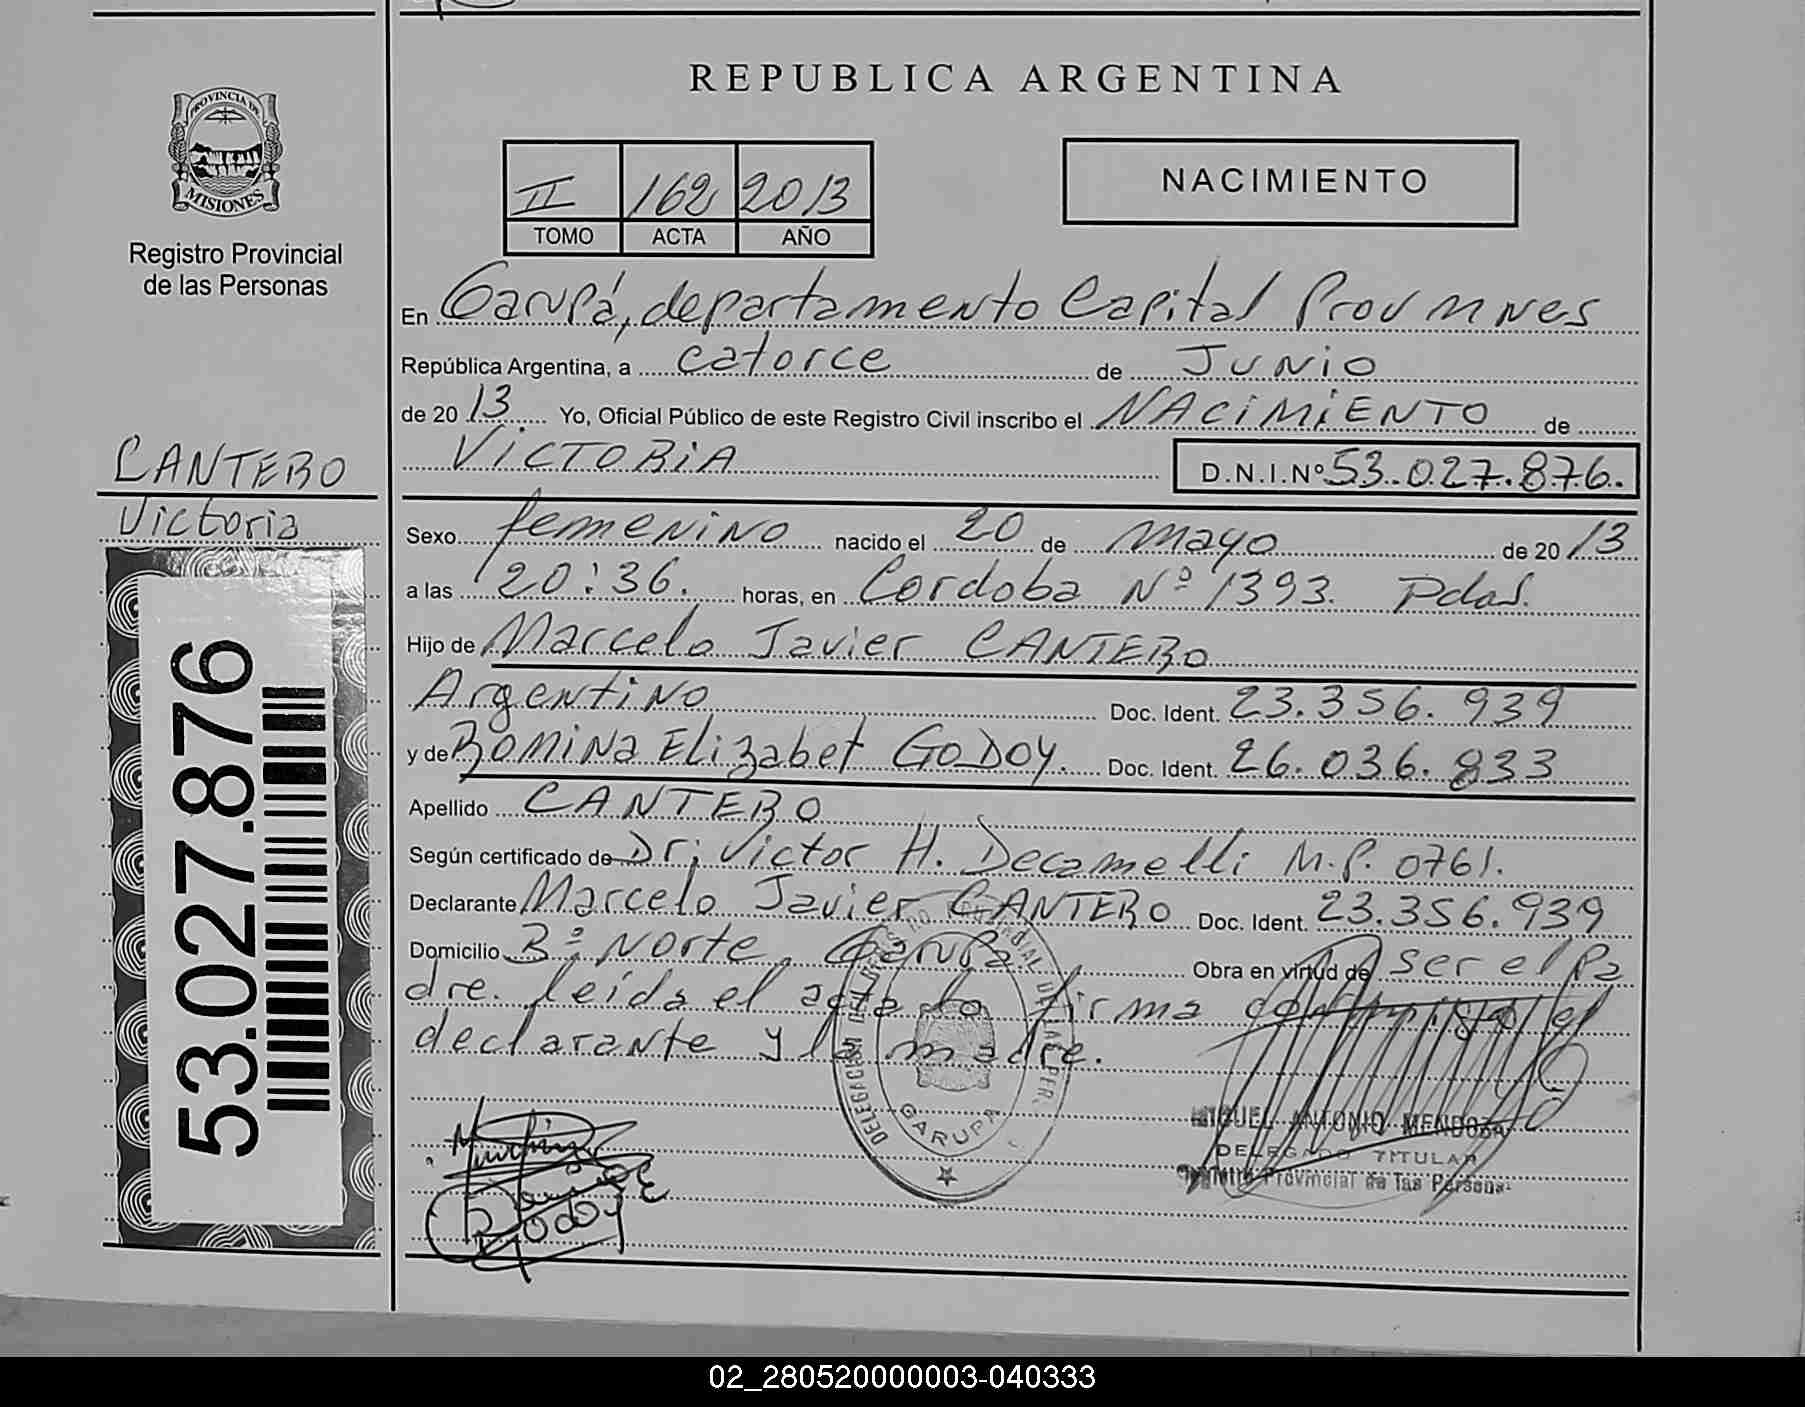 REPUBLICA ARGENTINA
PROVINCIA DE
MISIONES
Registro Provincial
de las Personas
II 162 2013
TOMO ACTA AÑO
NACIMIENTO
En Garupá, departamento Capital Prov Mnes
República Argentina, a catorce de Junio
de 2013 Yo, Oficial Público de este Registro Civil inscribo el NACIMIENTO de
VICTORIA D.N.I.Nº 53.027.876.
CANTERO
Victoria
53.027.876
Sexo femenino nacido el 20 de mayo de 2013
a las 20:36. horas, en Cordoba Nº 1393. Pdas.
Hijo de Marcelo Javier CANTERO
Argentino Doc. Ident. 23.356.939
y de Romina Elizabet GODOY. Doc. Ident. 26.036.833
Apellido CANTERO
Según certificado de Dr. Victor H. Decamelli M.P. 0761.
Declarante Marcelo Javier CANTERO Doc. Ident. 23.356.939
Domicilio Bº Norte, Garupá Obra en virtud de ser el Pa
dre. leída el acta la firma conmigo el
declarante y la madre.
DELEGACION DEL REGISTRO PROVINCIAL DE LAS PER
GARUPA
Godoy
MIGUEL ANTONIO MENDOZA
DELEGADO TITULAR
Registro Provincial de las Personas
02_280520000003-040333